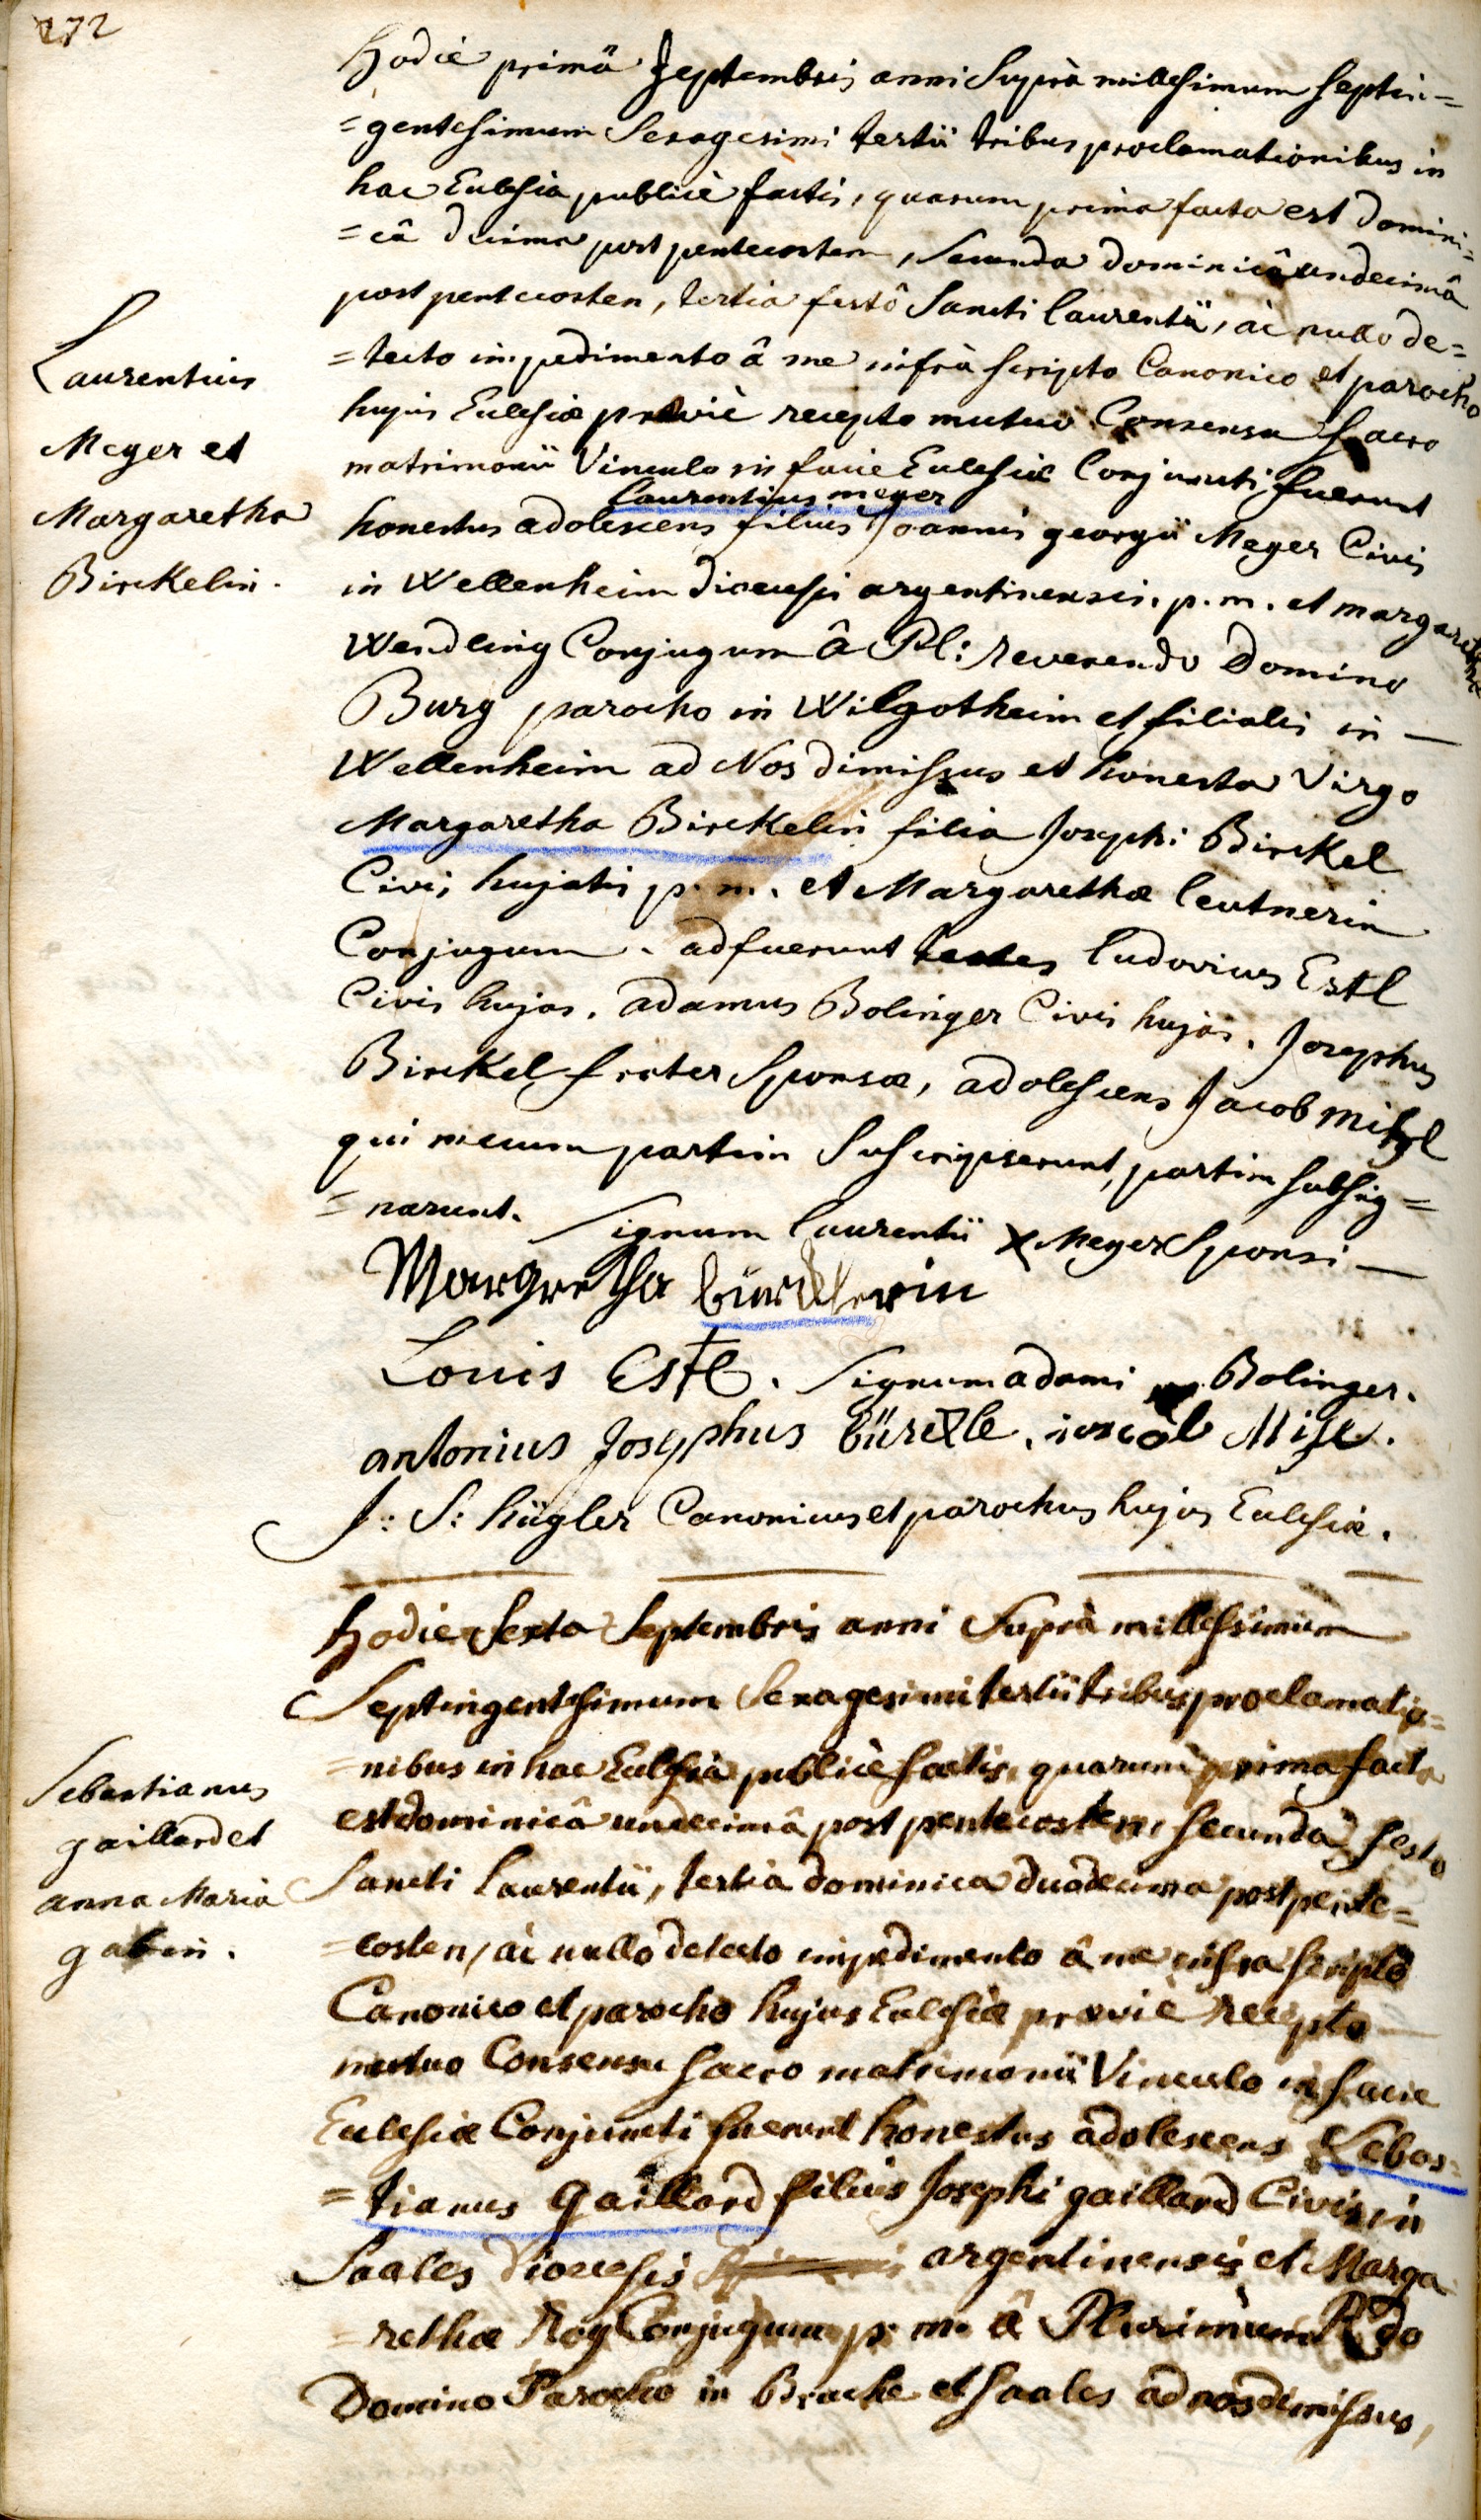 272
Hodie primâ Septembris anni Suprà millesimum septin=
=gentesimum Sexagesimi tertii tribus proclamationibus in
hac Ecclesia publicè factis, quarum prima facta est domini=
=câ decima post pentecosten, Secunda dominicâ undecimâ
post pentecosten, tertia festô Sancti laurentii, àc nullo de=
=tecto impedimento â me infrà scripto Canonico et parocho
hujus Ecclesiæ præviè recepto mutuo Consensu sacro
matrimonii Vinculo in facie Ecclesiæ Conjuncti fuerunt
laurentius meyer
honestus adolescens filius Joannis georgii Meyer Civis
in Wellenheim dioecesis argentinensis. p. m. et margarethæ
Wendling Conjugum â Pl: reverendo Domino
Burg parocho in Wilgotheim et filialis in —
Wellenheim ad Nos dimissus et honesta Virgo
Margaretha Birckelin filia Josephi Birckel
Civis hujatis p. m. et Margarethæ leutnerin
Conjugum. adfuerunt testes ludovicus Estl
Civis hujas. adamus Bolinger Civis hujas. Josephus
Birckel frater Sponsæ, adolescens Jacob
qui mecum partim Subscripserunt, partim subsig=
=narunt. Signum laurentii X Meyer Sponsi —
Margretha
Louis Estl. Signum adami Bolinger.
antonius Josephus bürckle.
J: S: hügler Canonicus et parochus hujus Ecclesiæ.
Laurentius
Meyer et
Margaretha
Birckelin.
Hodie Sexta Septembris anni Suprà millessimum
Septingentesimum Sexagesimi tertii tribus proclamatio=
=nibus in hac Ecclesia publicè factis, quarum prima facta
est dominicâ undecimâ post pentecosten, secunda festo
Sancti laurentii, tertia dominica duodecima post pente=
=costen, àc nullo detecto impedimento â me infra scripto
Canonico et parocho hujus Ecclesiæ prævie recepto —
mutuo Consensu sacro matrimonii Vinculo in facie
Ecclesiæ Conjuncti fuerunt honestus adolescens Sebas=
=tianus Gaillard filius Josephi gaillard Civis in
Saales dioecesis argentinensis et Marga
=rethæ Roy Conjugum p. m. â Plurimùm Rdo
Domino Parocho in Bruche et Saales ad nos dimissus,
Sebastianus
gaillard et
anna Maria